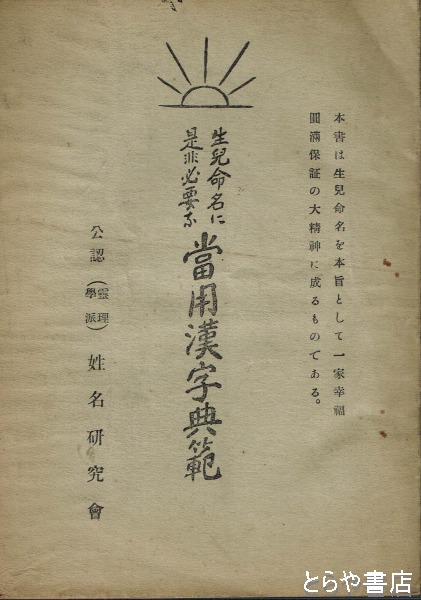 本書は生兒命名を本旨として一家幸福
圓滿保証の大精神に成るものである。
生兒命名に
是非必要な
當用漢字典範
公認(靈理學派)姓名研究會
とらや書店